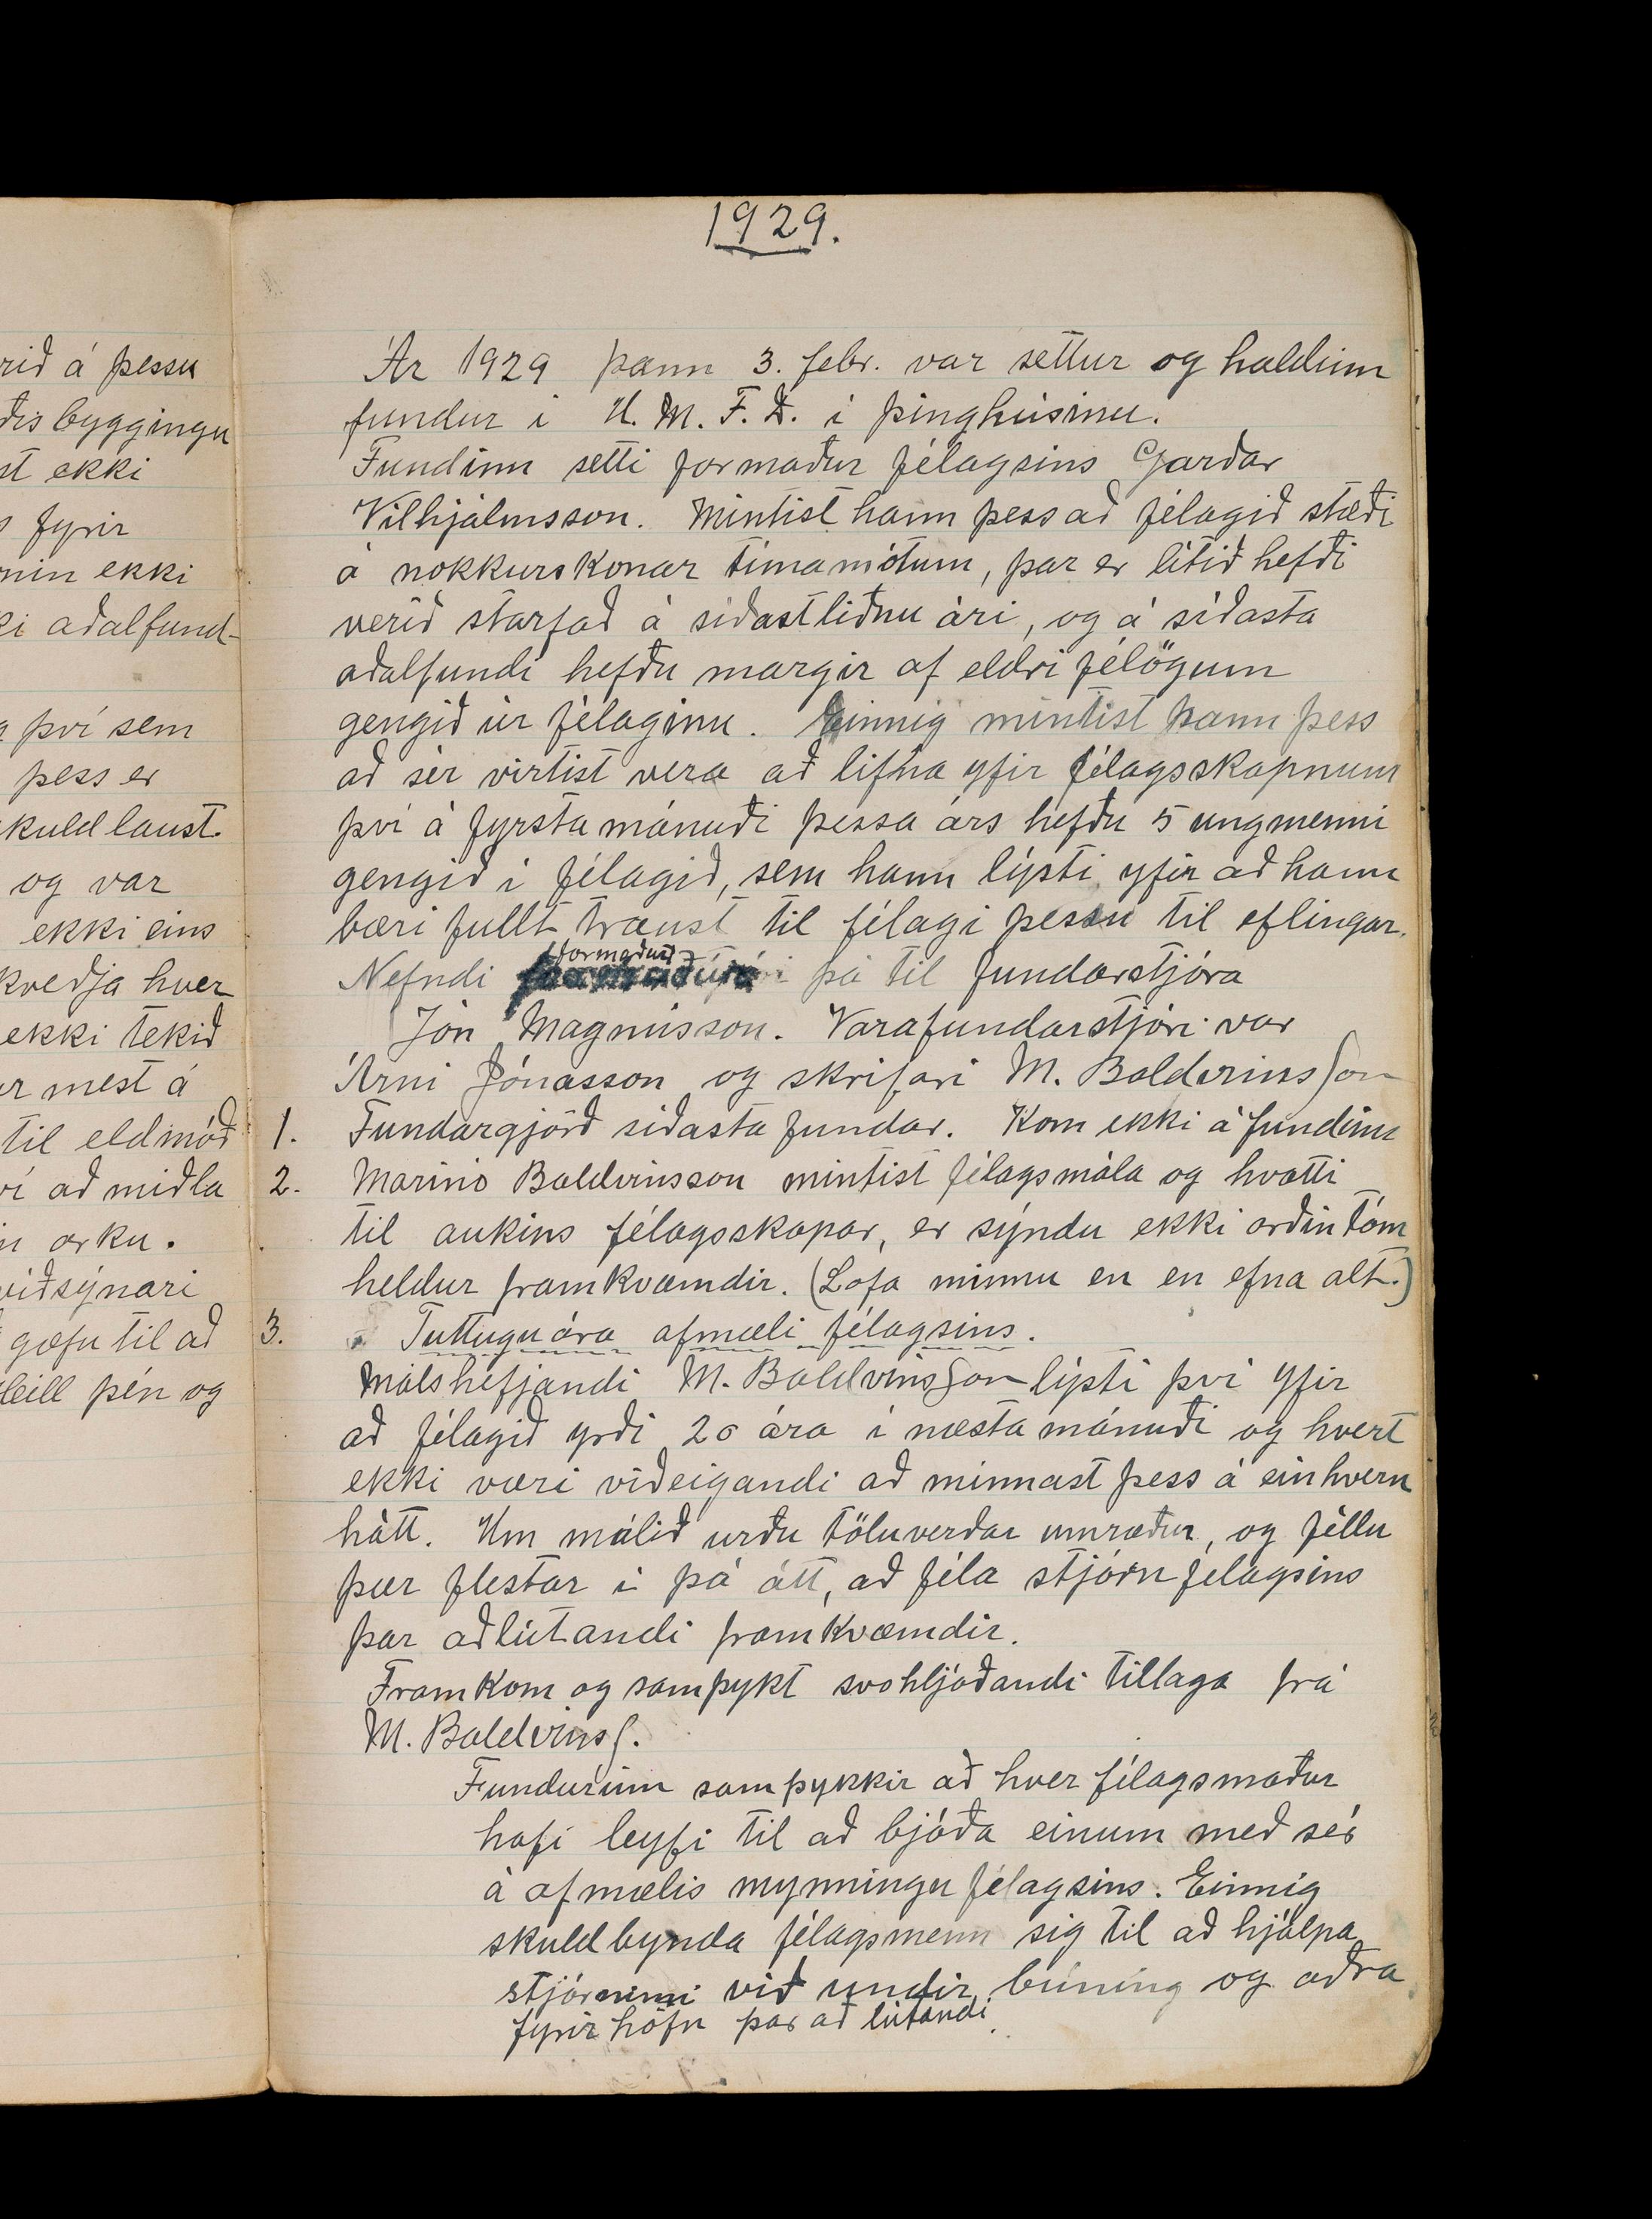 rið á þessu
ðisbyggingu
st ekki
fyrir
nin ekki
ki aðalfund-
því sem
þess er
kuldlaust.
og var
ekki eins
kveðja hver
ekki tekið
r mest á
til eldmóð
ví að miðla
n orku.
viðsýnari
gæfu til að
heill þín og
1929.
Ár 1929 þann 3. febr. var settur og haldinn
fundur í U. M. F. D. í þinghúsinu.
Fundinn setti formaður félagsins Garðar
Vilhjálmsson. Mintist hann þess að félagið stæði
á nokkurskonar tímamótum, þar er lítið hefði
verið starfað á síðastliðnu ári, og á síðasta
aðalfundi hefðu margir af eldri félögum
gengið úr félaginu. Einnig mintist hann þess
að sér virtist vera að lifna yfir félagsskapnum
því á fyrsta mánuði þessa árs hefðu 5 ungmenni
gengið í félagið, sem hann lýsti yfir að hann
bæri fullt traust til félagi þessu til eflingar.
Nefndi formaður þá til fundarstjóra
Jón Magnússon. Varafundarstjóri var
Árni Jónasson og skrifari M. Baldvinsson
1. Fundargjörð síðasta fundar. Kom ekki á fundinn
2. Marinó Baldvinsson mintist félagsmála og hvatti
til aukins félagsskapar, er sýndu ekki orðin tóm
heldur framkvæmdir. (Lofa minnu en en efna alt.)
3. Tuttugu ára afmæli félagsins.
Málshefjandi M. Baldvinsson lýsti því yfir
að félagið yrði 20 ára í næsta mánuði og hvert
ekki væri viðeigandi að minnast þess á einhvern
hátt. Um málið urðu töluverðar umræður, og féllu
þær flestar í þá átt, að féla stjórn félagsins
þar aðlútandi framkvæmdir.
Framkom og samþykt svohljóðandi tillaga frá
M. Baldvinss.
Fundurinn samþykkir að hver félagsmaður
hafi leyfi til að bjóða einum með sér
á afmælis mynningu félagsins. Einnig
skuldbynda félagsmenn sig til að hjálpa
stjórninni við undir búning og aðra
fyrirhöfn þar að lútandi.